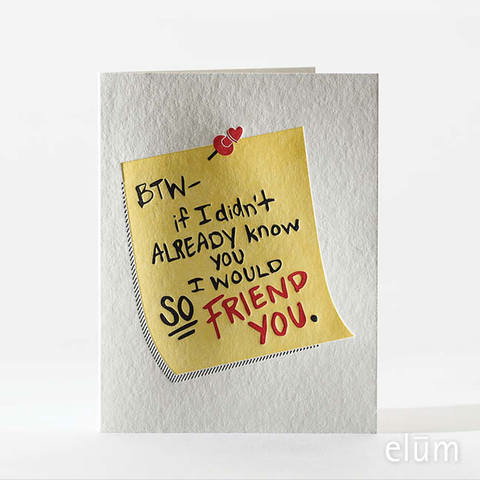 BTW-
if I didn't
ALREADY know
YOU
I WOULD
SO FRIEND
YOU.
elūm